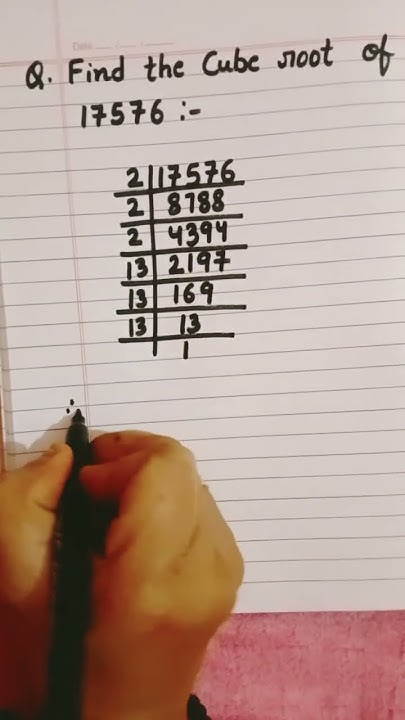 Date
Q. Find the Cube root of
17576 :-
2 17576
2 8788
2 4394
13 2197
13 169
13 13
1
∴